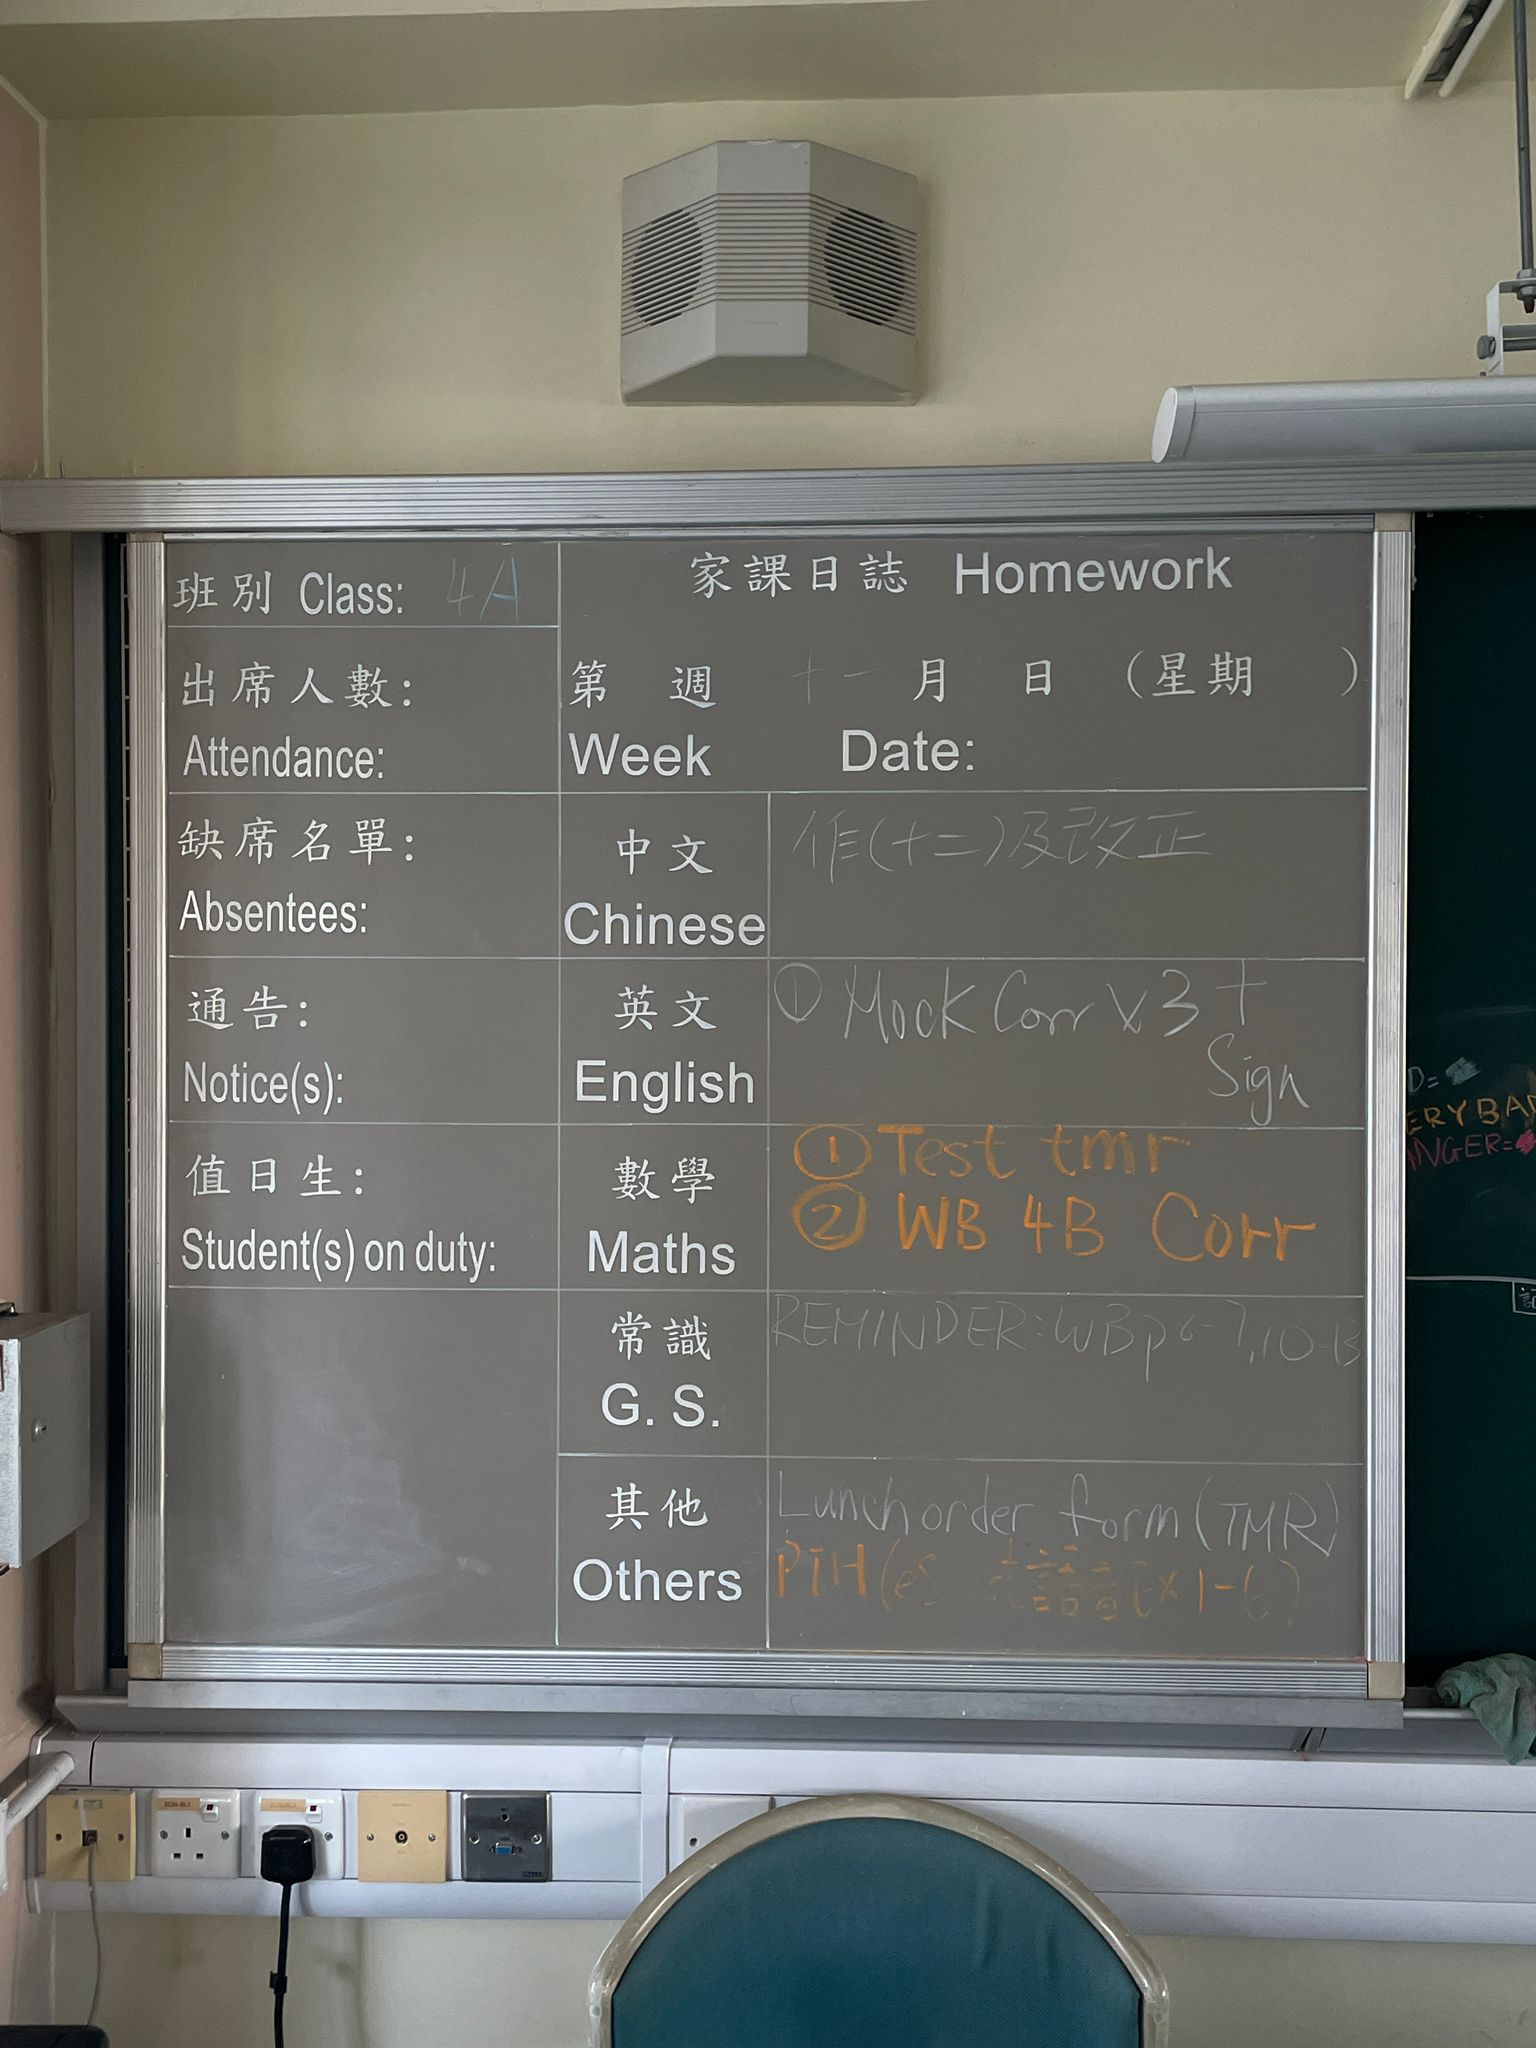 班別 Class: 4A
家課日誌 Homework
出席人數:
Attendance:
第 週 十一月 日 (星期 )
Week Date:
缺席名單:
Absentees:
中文
Chinese
作(十二)及改正
通告:
Notice(s):
英文
English
① Mock Corr x3 +
Sign
值日生:
Student(s) on duty:
數學
Maths
① Test tmr
② WB 4B Corr
常識
G. S.
REMINDER: WB p6-7, 10-13
其他
Others
Lunch order form (TMR)
PTH
D=
ERY BAD
ANGER=